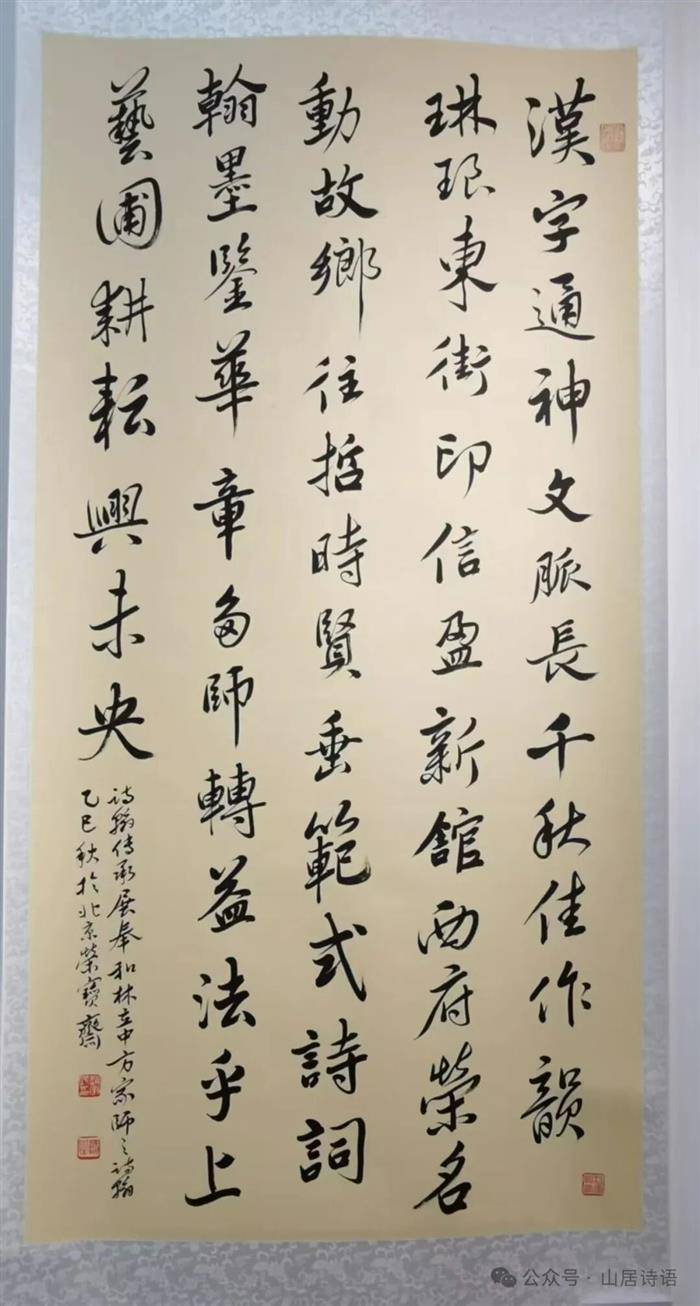 漢字通神文脈長千秋佳作韻
琳琅東街印信盈新館西府榮名
動故鄉往哲時賢垂範式詩詞
翰墨鑒華章多師轉益法乎上
藝圃耕耘興未央
诗翰传承展奉和林中方家师之诗翰
乙巳秋於北京榮寶齋
公众号·山居诗语